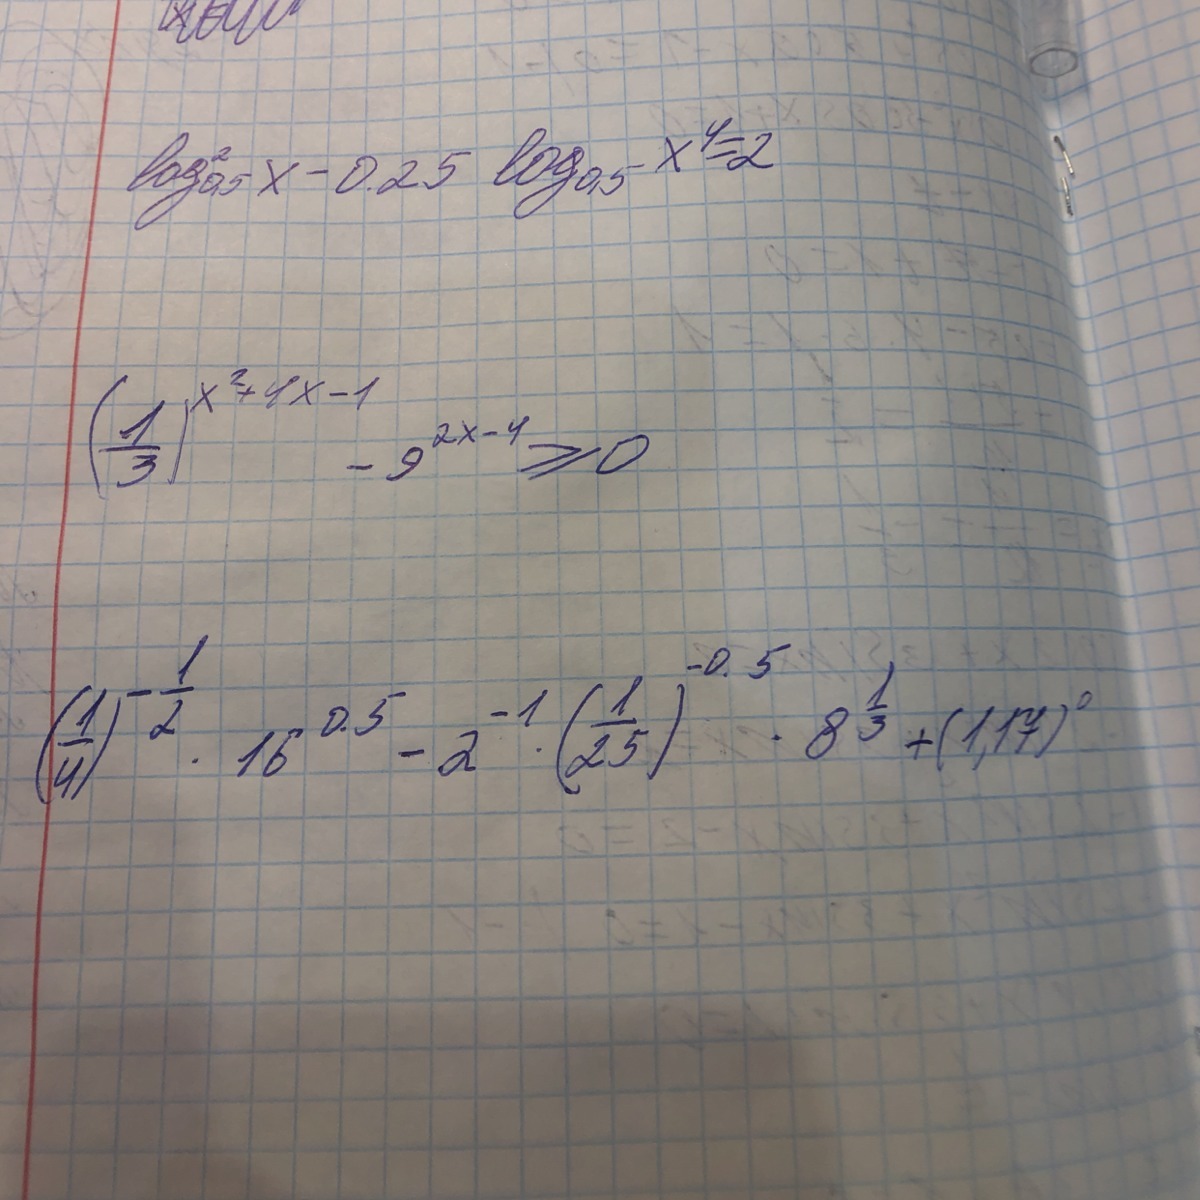 log²₀,₅ x - 0.25 log₀,₅ x⁴ = 2
(1/3)^(x²+4x-1) - 9^(2x-4) ≥ 0
(1/4)^(-1/2) · 16^0.5 - 2^(-1) · (1/25)^(-0.5) · 8^(1/3) + (1,17)⁰